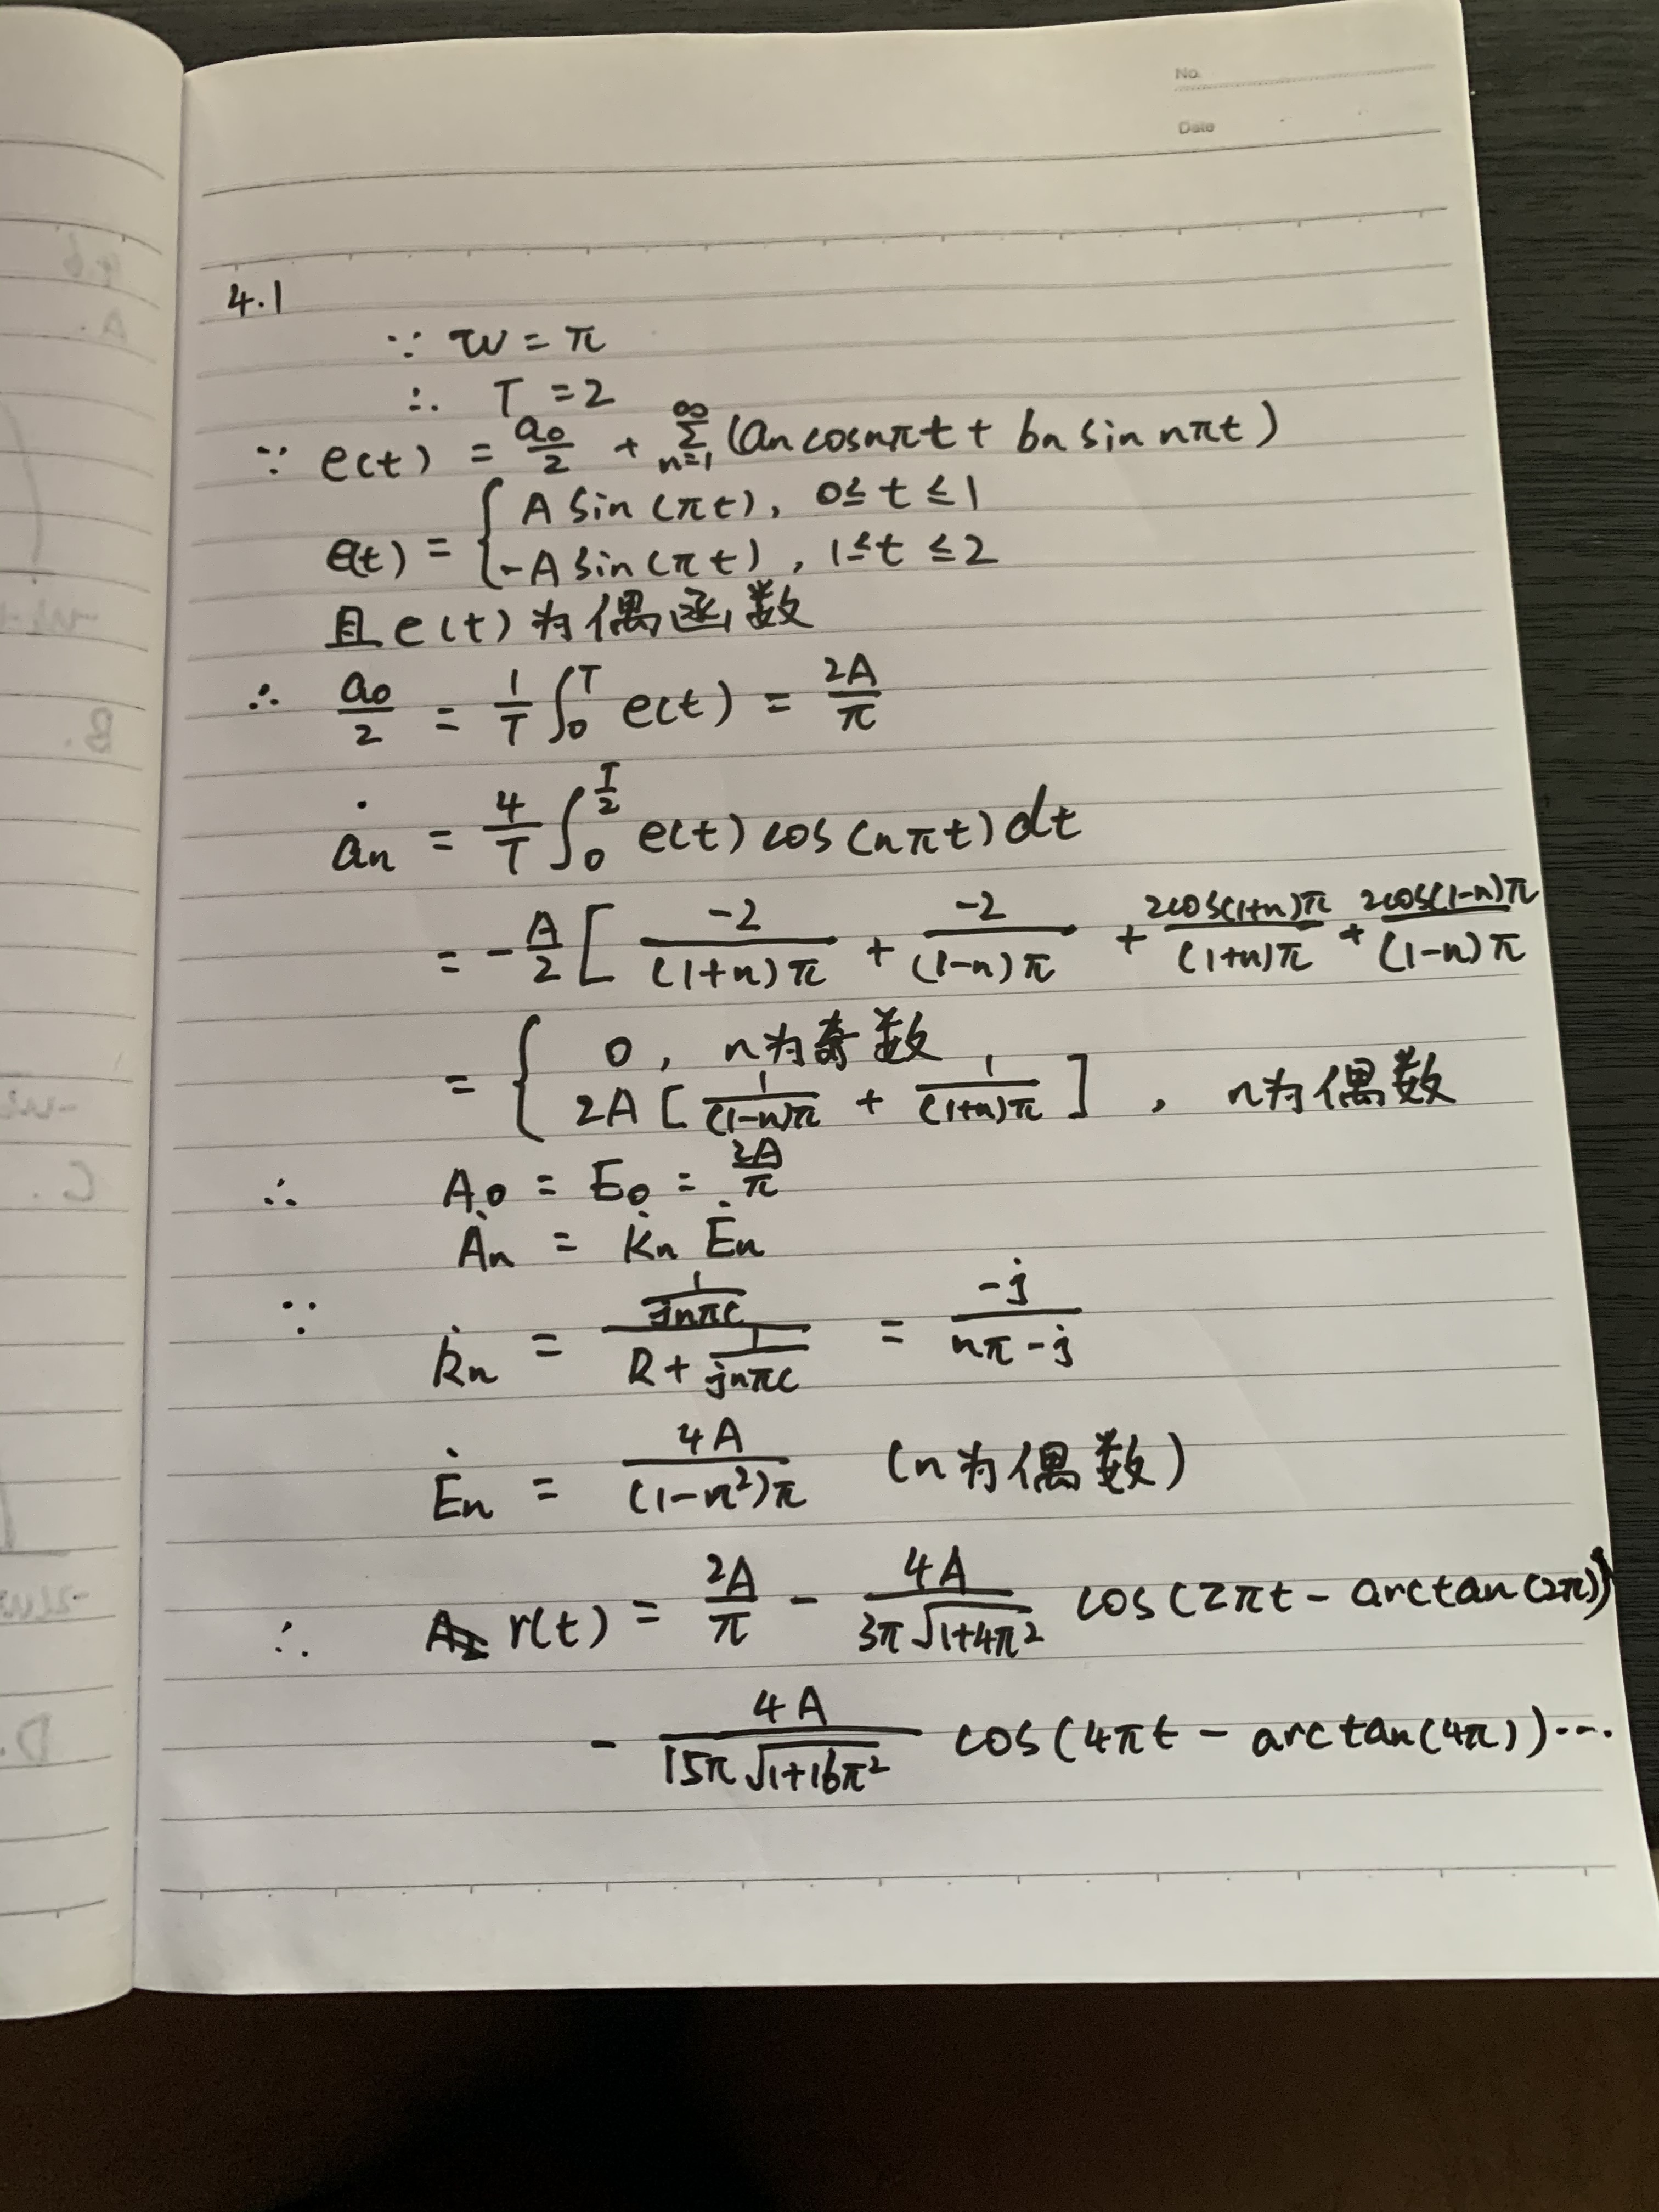 No.
Date
4.1
∵ w = π
∴ T = 2
∵ e(t) = a₀/2 + Σ_{n=1}^{∞} (an cos nπt + bn sin nπt)
e(t) = { A sin(πt), 0 ≤ t ≤ 1
-A sin(πt), 1 ≤ t ≤ 2
且 e(t) 为偶函数
∴ a₀/2 = 1/T ∫₀^T e(t) = 2A/π
ȧn = 4/T ∫₀^{T/2} e(t) cos(nπt) dt
= -A/2 [ -2/((1+n)π) + -2/((1-n)π) + 2cos(1+n)π/((1+n)π) + 2cos(1-n)π/((1-n)π)
= { 0, n为奇数
2A [ 1/((1-n)π) + 1/((1+n)π) ], n为偶数
∴ A₀ = E₀ = 2A/π
Ȧn = k̇n Ėn
∵ k̇n = (1/(jnπC)) / (R + 1/(jnπC)) = -j/(nπ-j)
Ėn = 4A/((1-n²)π) (n为偶数)
∴ r(t) = 2A/π - 4A/(3π√(1+4π²)) cos(2πt - arctan(2π))
- 4A/(15π√(1+16π²)) cos(4πt - arctan(4π))···
4.6
A.
B.
C.
D.